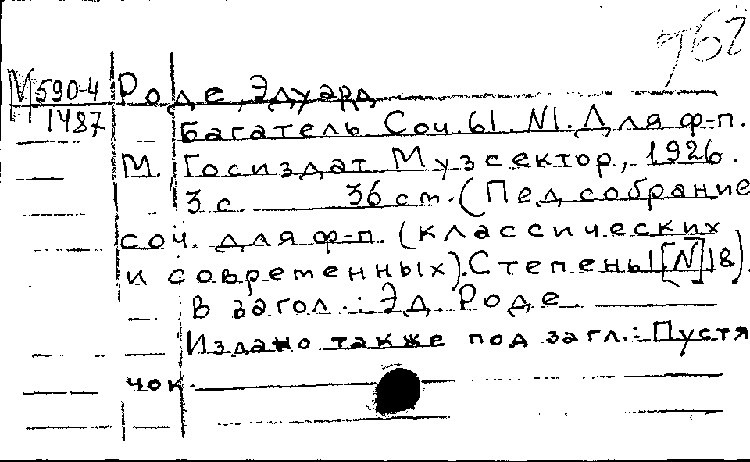 762
М590-4 Роде, Эдуард
1487 Багатель. Соч. 61. N1. Для ф-п.
М. Госиздат. Музсектор, 1926.
3 с. 36 ст. (Пед собрание
соч. для ф-п. (классических
и современных). Степень I [N] 18).
В загол.: Эд. Роде
Издано также под загл.: Пустя
чок